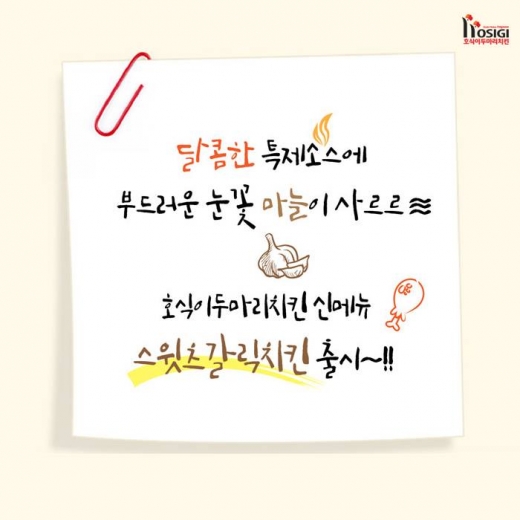 HOSIGI
호식이두마리치킨
달콤한 특제소스에
부드러운 눈꽃 마늘이 사르르≋
호식이두마리치킨 신메뉴
스윗츠갈릭치킨 출시~!!